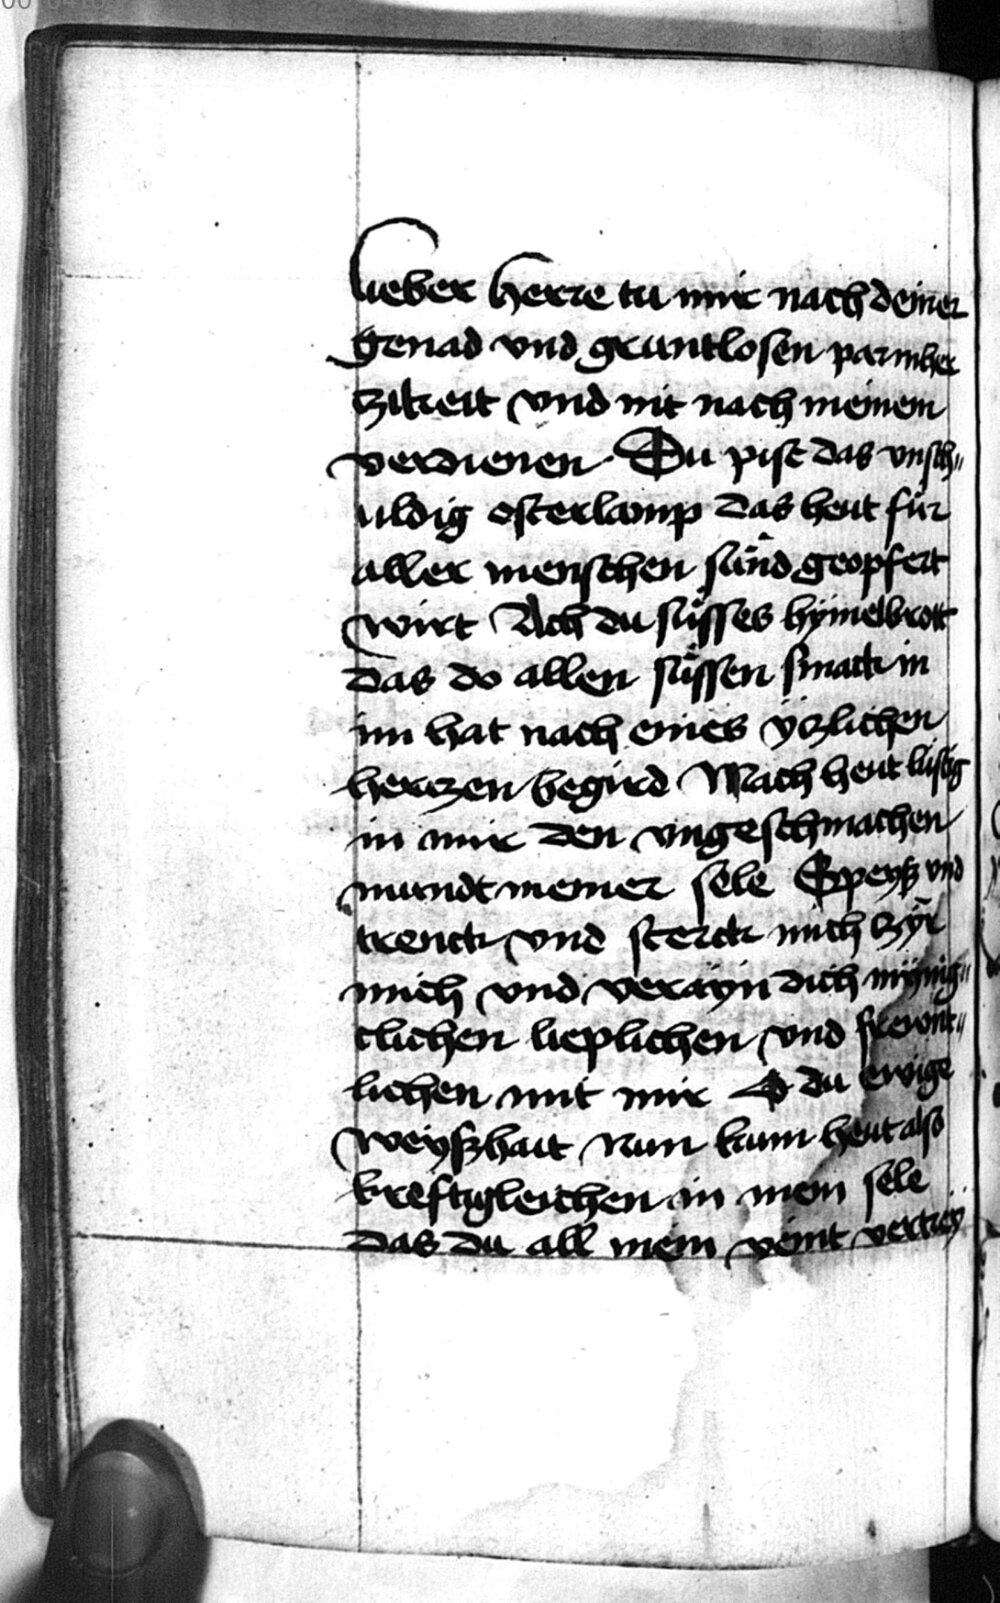 lieber herre tu mir nach deiner
genad vnd gruntlosen parmher
tzikeit vnd nit nach meinem
verdienen Du pist das vnsch„
uldig osterlamp das heut für
aller menschen sünd geopfert
wirt Ach du süsses hymelbrott
das do allen süssen smack in
im hat nach eines ytzlichen
hertzen begird Mach heut lustig
in mir den vngeschmachen
mundt meiner sele Speyß vnd
trenck vnd sterck mich tzyr
mich vnd verayn dich mynig„
clichen lieplichen vnd frewnt„
lichen mit mir O du ewige
weyßhait Nun kum heut also
kreftigleichen in mein sele
das du all mein veint vertrey